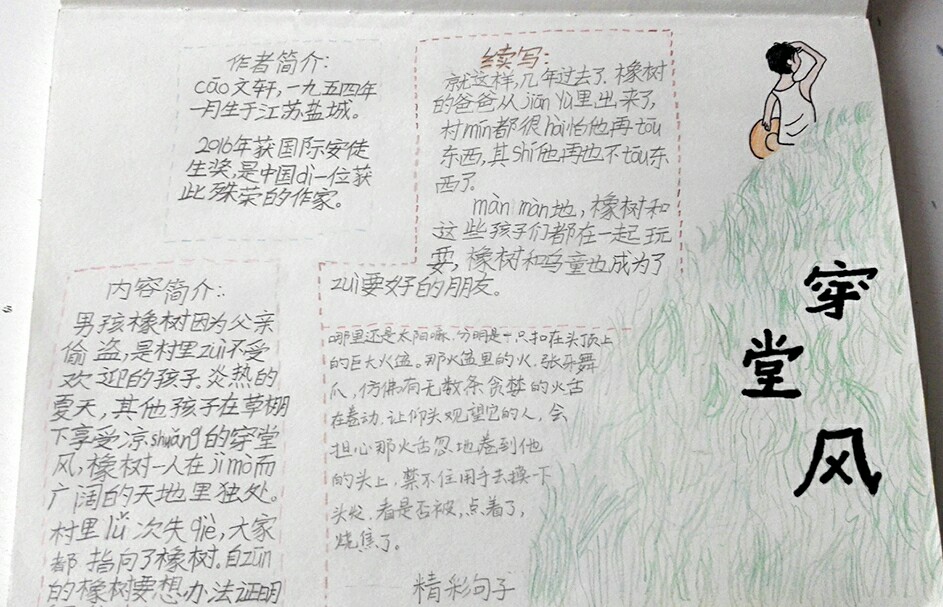 作者简介：
cāo文轩，一九五四年
一月生于江苏盐城。
2016年获国际安徒
生奖，是中国di一位获
此殊荣的作家。
续写：
就这样，几年过去了，橡树
的爸爸从jiān yù里出来了，
村mín都很hài怕他再tōu
东西，其shí他再也不tōu东
西了。
màn màn地，橡树和
这些孩子们都在一起玩
耍，橡树和乌童也成为了
zuì要好的朋友。
内容简介：
男孩橡树因为父亲
偷盗，是村里zuì不受
欢迎的孩子。炎热的
夏天，其他孩子在草棚
下享受凉shuǎng的穿堂
风，橡树一人在jìmò而
广阔的天地里独处。
村里lǚ次失qiè，大家
都指向了橡树。自zūn
的橡树要想办法证明
哪里还是太阳嘛，分明是一只扣在头顶上
的巨大火盆。那火盆里的火，张牙舞
爪，仿佛有无数条贪婪的火舌
在卷动，让仰头观望它的人，会
担心那火舌忽地卷到他
的头上，禁不住用手去摸一下
头发，看是否被点着了，
烧焦了。
精彩句子
穿
堂
风